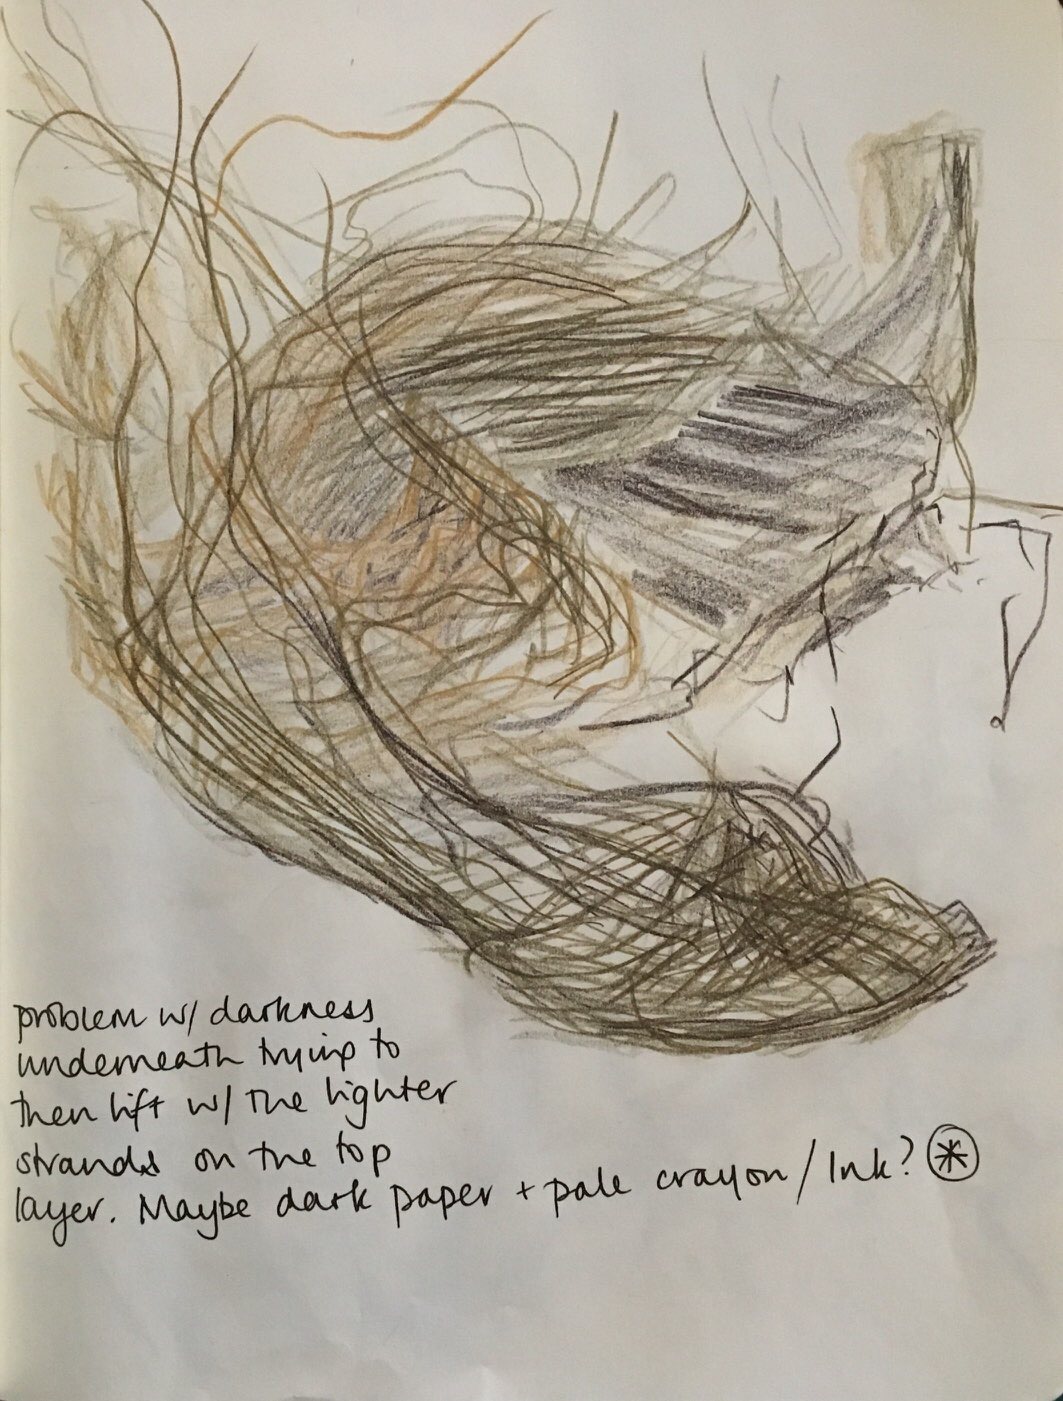 problem w/ darkness
underneath trying to
then lift w/ the lighter
strands on the top
layer. Maybe dark paper + pale crayon / Ink? ⊛